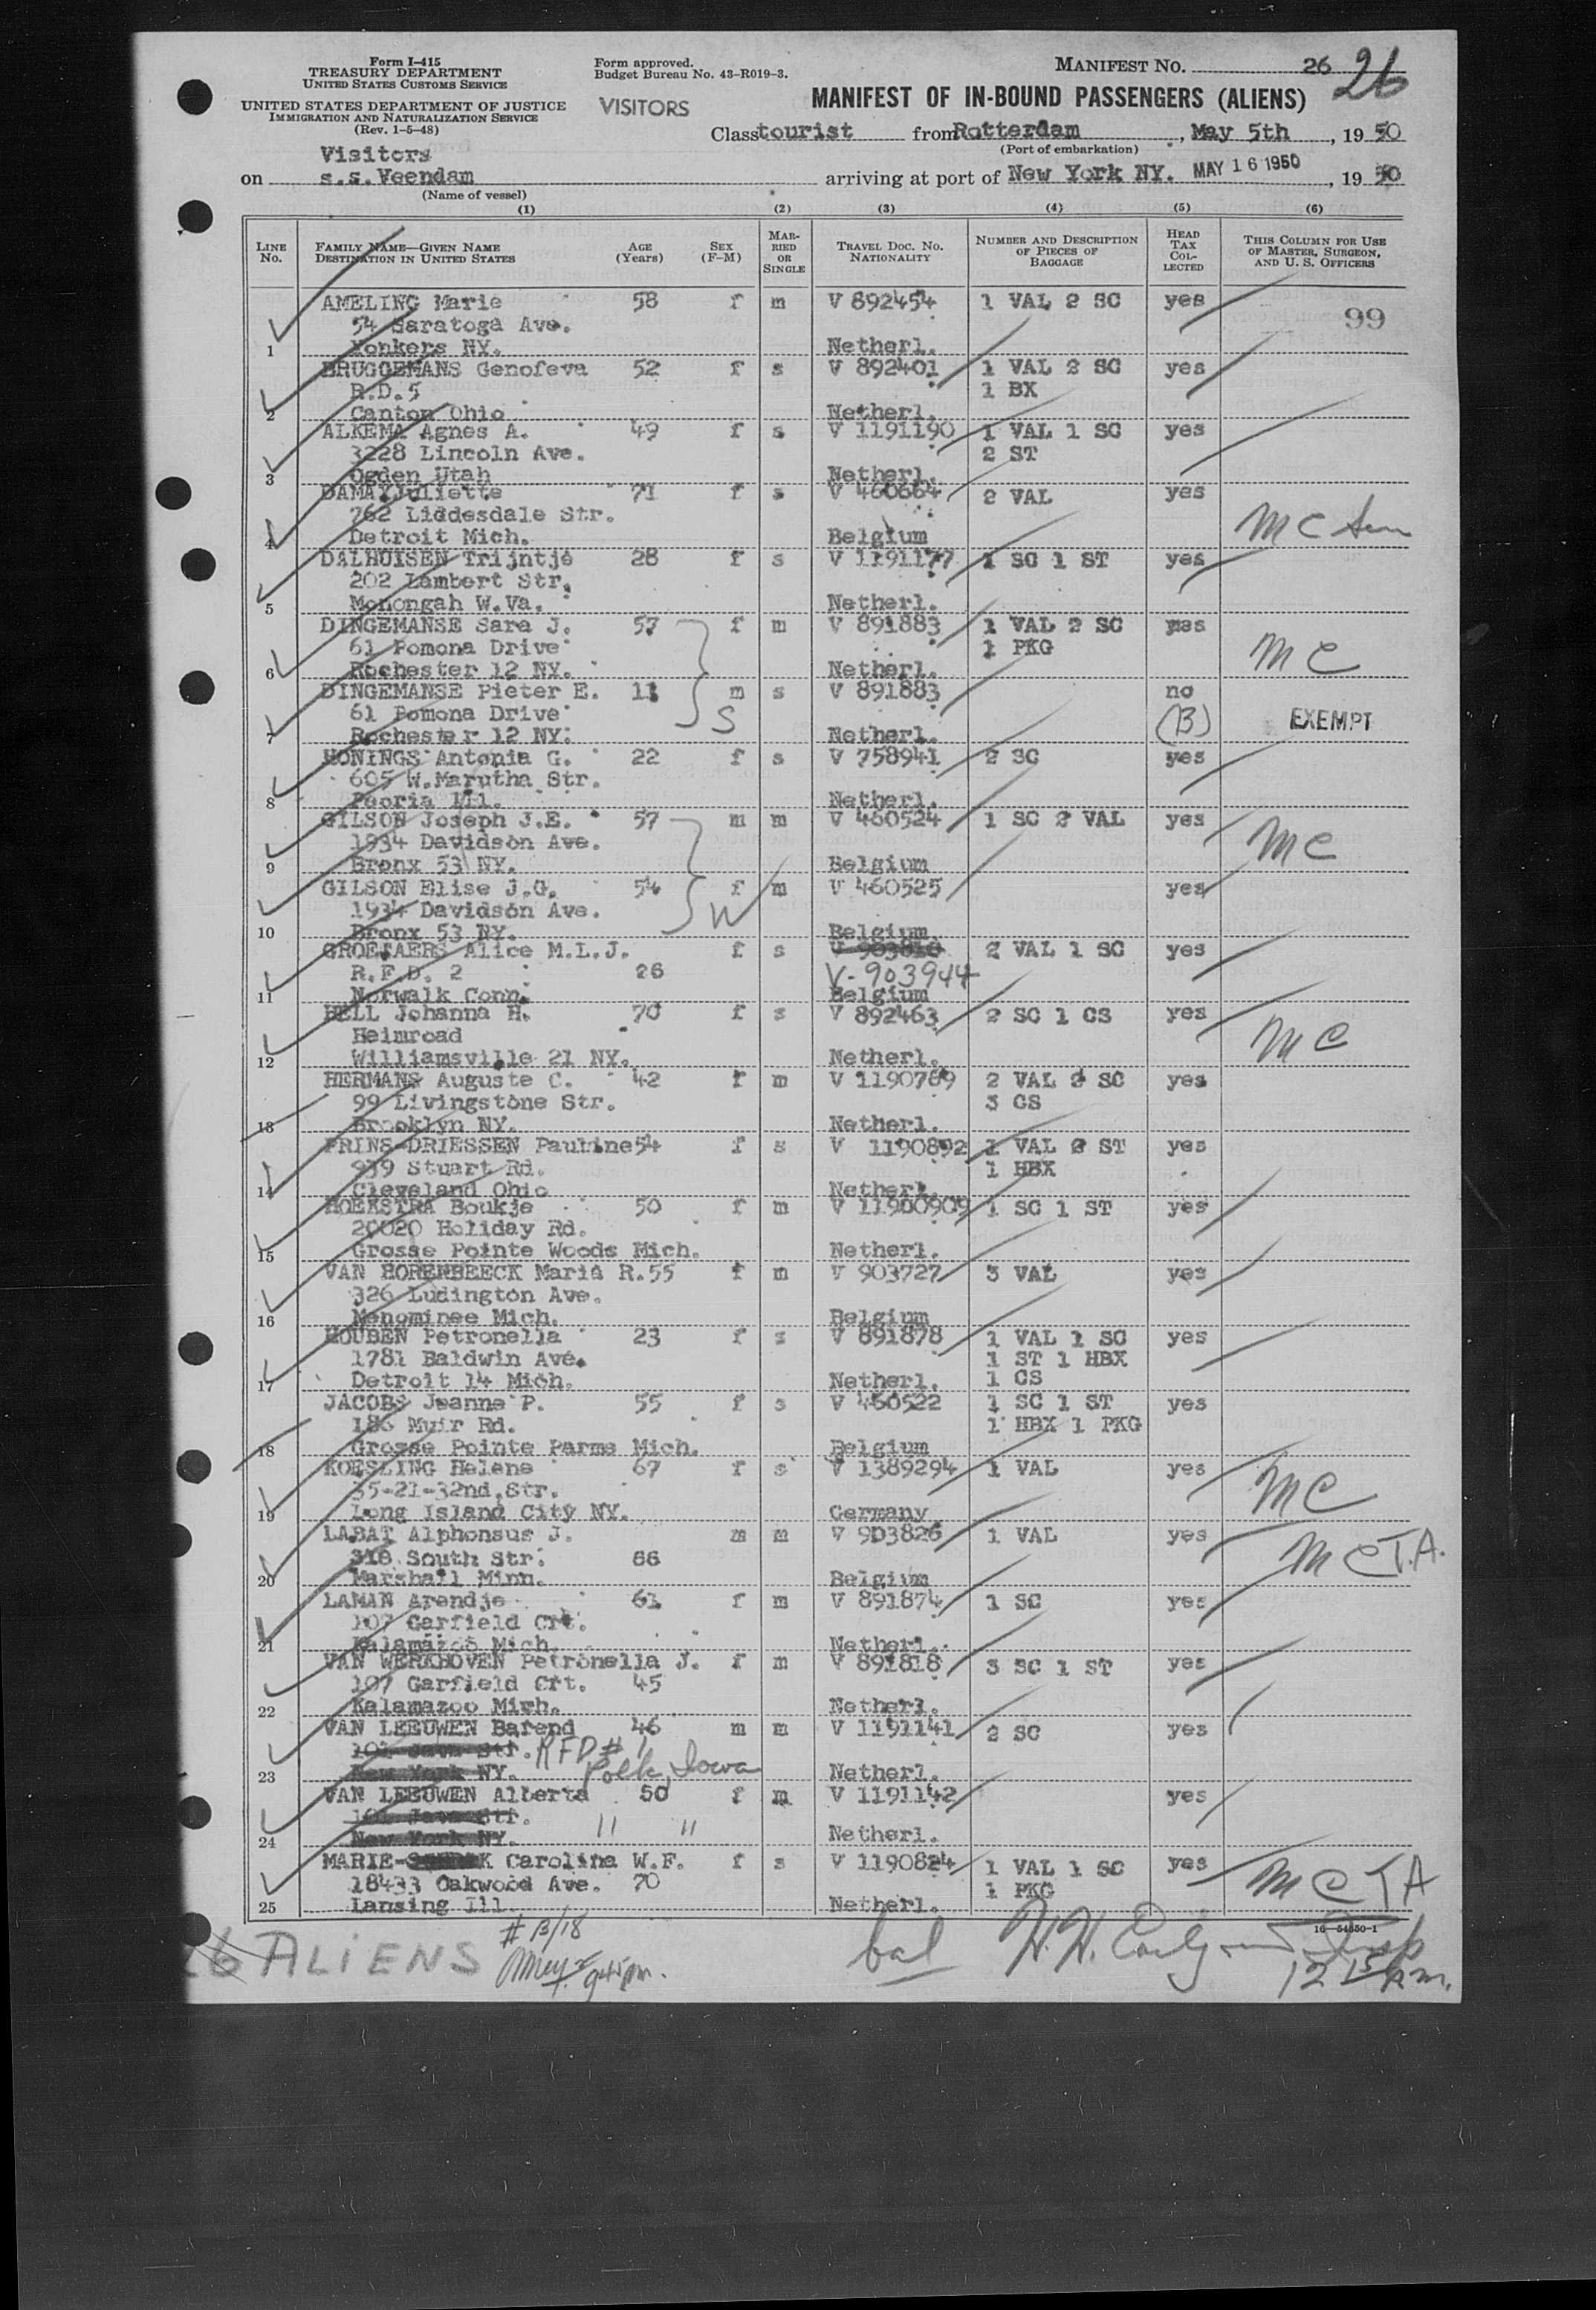 Form I-415
TREASURY DEPARTMENT
UNITED STATES CUSTOMS SERVICE
UNITED STATES DEPARTMENT OF JUSTICE
IMMIGRATION AND NATURALIZATION SERVICE
(Rev. 1-5-48)
Form approved.
Budget Bureau No. 43-R019-3.
VISITORS
MANIFEST NO. 26 26
MANIFEST OF IN-BOUND PASSENGERS (ALIENS)
Class tourist from Rotterdam, May 5th, 19 50
(Port of embarkation)
Visitors
on s.s. Veendam arriving at port of New York NY. MAY 16 1950, 19 50
(Name of vessel)
(1) (2) (3) (4) (5) (6)
LINE No. FAMILY NAME—GIVEN NAME DESTINATION IN UNITED STATES AGE (Years) SEX (F-M) MARRIED OR SINGLE TRAVEL DOC. NO. NATIONALITY NUMBER AND DESCRIPTION OF PIECES OF BAGGAGE HEAD TAX COLLECTED THIS COLUMN FOR USE OF MASTER, SURGEON, AND U. S. OFFICERS
AMELING Marie 58 f m V 892454 1 VAL 2 SC yes
54 Saratoga Ave. 99
1 Yonkers NY. Netherl.
BRUGGEMANS Genofeva 52 f s V 892401 1 VAL 2 SC yes
R.D.5 1 BX
2 Canton Ohio Netherl.
ALKEMA Agnes A. 49 f s V 1191190 1 VAL 1 SC yes
3228 Lincoln Ave. 2 ST
3 Ogden Utah Netherl.
DAMAY Juliette 71 f s V 460664 2 VAL yes
762 Liddesdale Str. MC
4 Detroit Mich. Belgium
DALHUISEN Trijntje 28 f s V 1191177 1 SC 1 ST yes
202 Lambert Str.
5 Monongah W.Va. Netherl.
DINGEMANSE Sara J. 57 f m V 891883 1 VAL 2 SC yes
61 Pomona Drive 1 PKG MC
6 Rochester 12 NY. Netherl.
DINGEMANSE Pieter E. 11 m s V 891883 no
61 Pomona Drive S (B) EXEMPT
7 Rochester 12 NY. Netherl.
HONINGS Antonia G. 22 f s V 758941 2 SC yes
605 W.Marutha Str.
8 Peoria Ill. Netherl.
GILSON Joseph J.E. 57 m m V 460524 1 SC 2 VAL yes
1934 Davidson Ave. MC
9 Bronx 53 NY. Belgium
GILSON Elise J.G. 54 f m V 460525 yes
1934 Davidson Ave. W
10 Bronx 53 NY. Belgium
GROETAERS Alice M.L.J. f s V 903810 2 VAL 1 SC yes
R.F.D. 2 26 V-903944
11 Norwalk Conn. Belgium
HELL Johanna H. 70 f s V 892463 2 SC 1 CS yes
Heimroad MC
12 Williamsville 21 NY. Netherl.
HERMANS Auguste C. 42 f m V 1190769 2 VAL 2 SC yes
99 Livingstone Str. 3 CS
13 Brooklyn NY. Netherl.
PRINS-DRIESSEN Pauline 54 f s V 1190892 1 VAL 2 ST yes
939 Stuart Rd. 1 HBX
14 Cleveland Ohio Netherl.
HOEKSTRA Boukje 50 f m V 11900909 1 SC 1 ST yes
20020 Holiday Rd.
15 Grosse Pointe Woods Mich. Netherl.
VAN HORENBEECK Maria R. 55 f m V 903727 3 VAL yes
326 Ludington Ave.
16 Menominee Mich. Belgium
HOUBEN Petronella 23 f s V 891878 1 VAL 1 SC yes
1781 Baldwin Ave. 1 ST 1 HBX
17 Detroit 14 Mich. Netherl. 1 CS
JACOBS Jeanne P. 55 f s V 460522 1 SC 1 ST yes
186 Muir Rd. 1 HBX 1 PKG
18 Grosse Pointe Parms Mich. Belgium
KOESLING Helene 67 f s V 1389294 1 VAL yes
35-21-32nd.Str. MC
19 Long Island City NY. Germany
LABAT Alphonsus J. m m V 903826 1 VAL yes
318 South Str. 66 MC T.A.
20 Marshall Minn. Belgium
LAMAN Arendje 61 f m V 891874 1 SC yes
107 Garfield Crt.
21 Kalamazoo Mich. Netherl.
VAN WERKHOVEN Petronella J. f m V 891818 3 SC 1 ST yes
107 Garfield Crt. 45
22 Kalamazoo Mich. Netherl.
VAN LEEUWEN Barend 46 m m V 1191141 2 SC yes
101 Java Str. RFD # 1
23 New York NY. Polk, Iowa Netherl.
VAN LEEUWEN Alberta 50 f m V 1191142 yes
101 Java Str. " "
24 New York NY. Netherl.
MARIE- Carolina W.F. f s V 1190824 1 VAL 1 SC yes
18433 Oakwood Ave. 70 1 PKG MC TA
25 Lansing Ill. Netherl.
16—54650-1
26 ALIENS # 13/18 bal H.H. Insp
945 pm. 12 15 p.m.